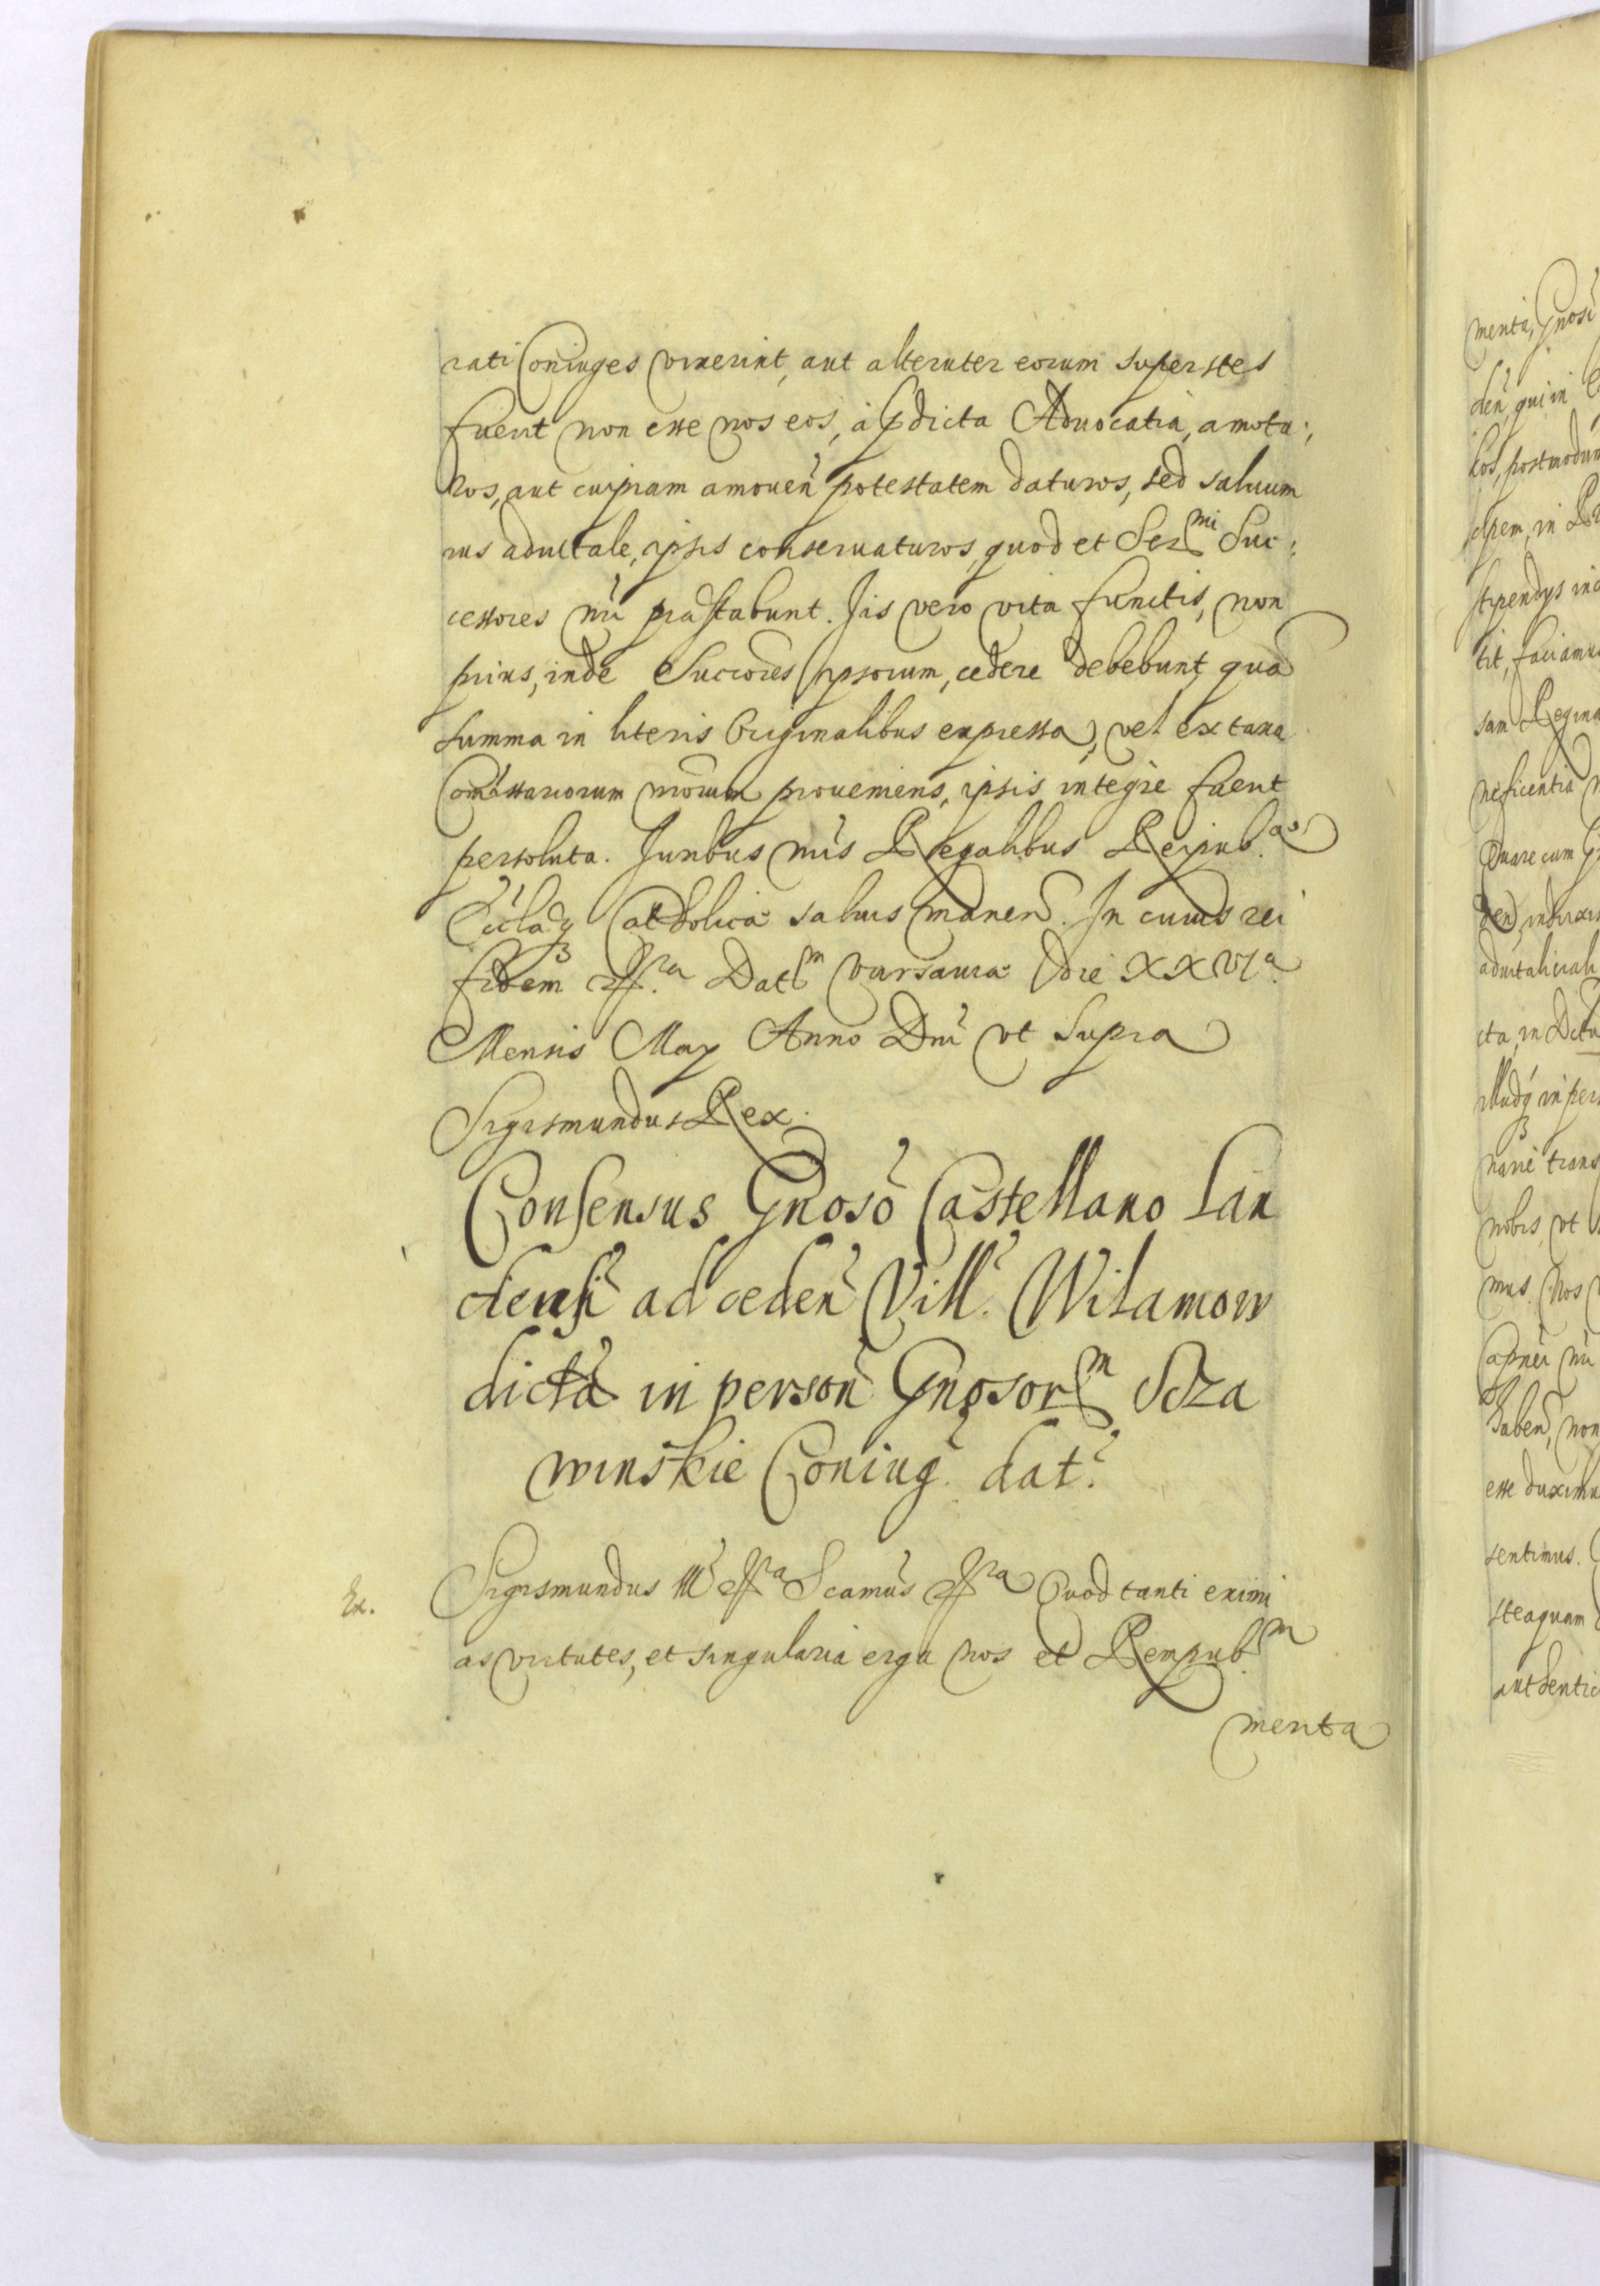 rati Coniuges vixerint, aut alteruter eorum superstes
fuerit non esse nos eos, à pdicta Aduocatia, amotu:,
ros, aut cuipiam amouen̄ potestatem daturos, sed saluum
ius aduitale, ipsis conseruaturos, quod et Ser^mi Suc:
cessores nri præstabunt. Iis vero vita functis, non
prius, inde Succores ipsorum, cedere debebunt, qua
summa in literis Originalibus expressa, vel ex taxa
Comissariorum nrorum proueniens, ipsis integre fuerit
persoluta. Iuribus nris Regalibus Reipub.^æ
Ecclæq Catholicæ saluis manen. In cuius rei
fidem etc.^ra Dat^m Varsauiæ die XXVI^a.
Mensis May Anno Dni vt supra
Sigismundus Rex.
Consensus Gnoso Castellano Lan
den̄si ad ceden Vill. Wilamow
dictā in person Gnosor^m Scza
winskie Coniug. dat.
Ex.
Sigismundus III etc^ra Scamus etc^ra Quod tanti eximi
as virtutes, et singularia erga nos et Rempub.^m
merita
merita, Gnosi
den, qui in
kos, postmodum
stipendys in
tit, faciamus
sam Regina
neficentia
Quare cum
aduitaliciali
cta, in
illudq in per
narie trans
nobis, vt
mus. Nos
haben, non
esse duximu
sentimus.
authentic